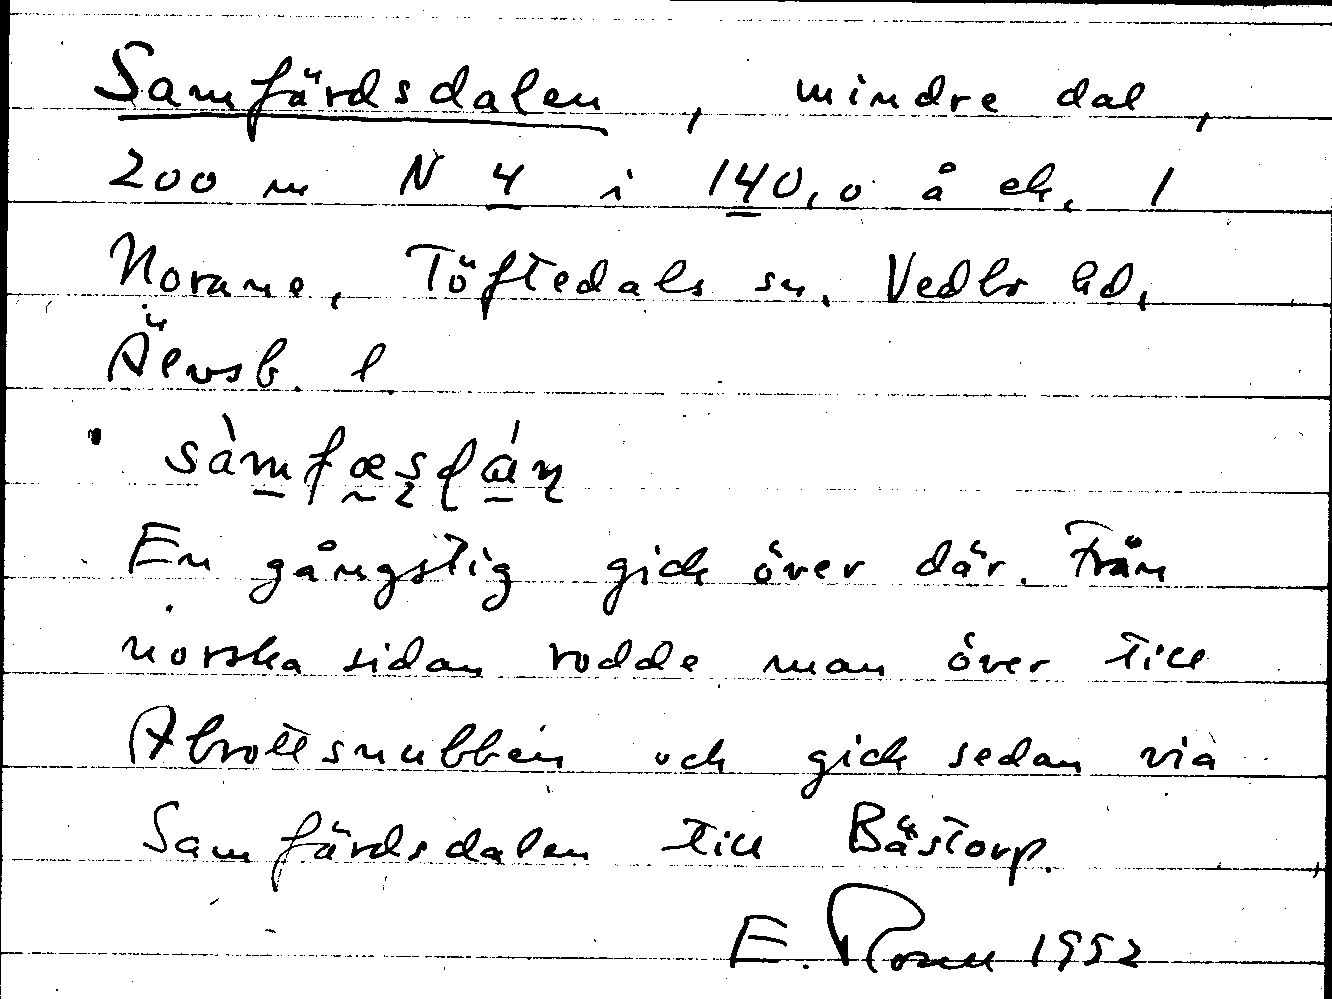 Samfärdsdalen, mindre dal,
200 m N 4 i 140,0 å ek. 1
Norane, Töftedals sn, Vedbo hd,
Älvsb. l
sàmfæsdán
En gångstig gick över där. Från
norska sidan rodde man över till
Abrottsnubben och gick sedan via
Samfärdsdalen till Bästorp.
E. Rosen 1952